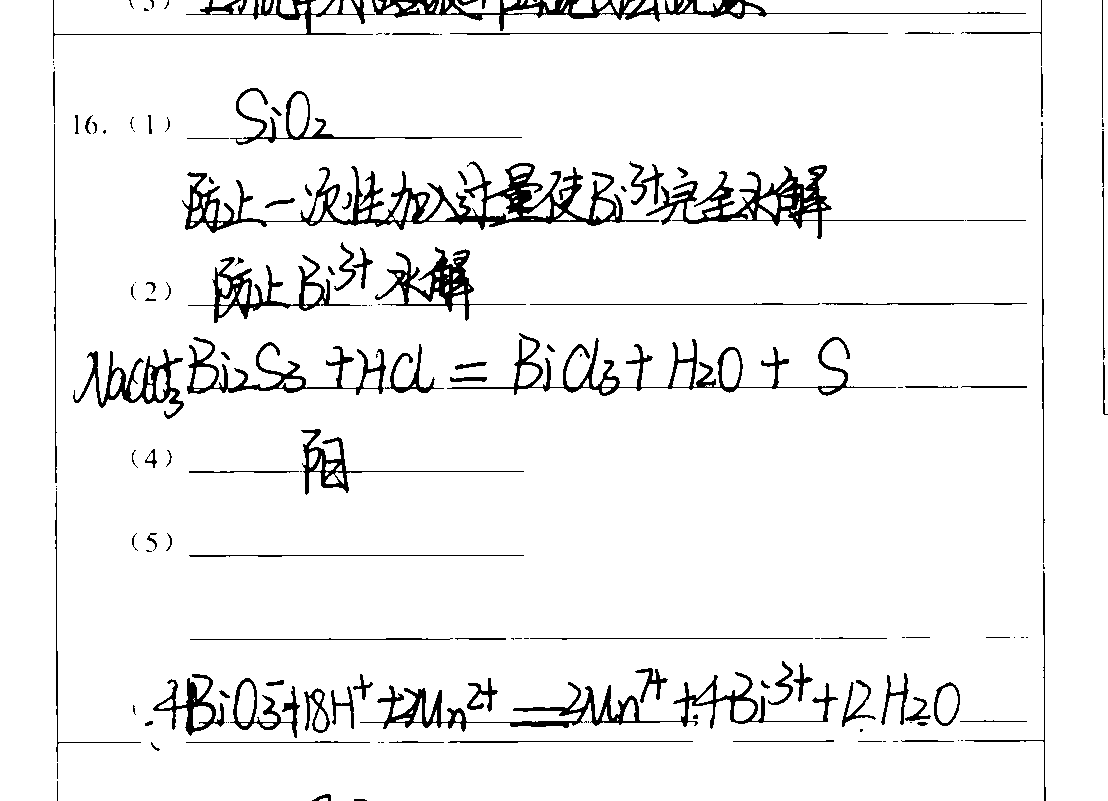 (3)
16.(1) SiO₂
防止一次性加入过量使Bi³⁺完全水解
(2) 防止Bi³⁺水解
Bi₂S₃ + HCl = BiCl₃ + H₂O + S
(4) 阳
(5)
4BiO₃⁻+18H⁺+2Mn²⁺ = 2Mn⁷⁺+4Bi³⁺+12H₂O